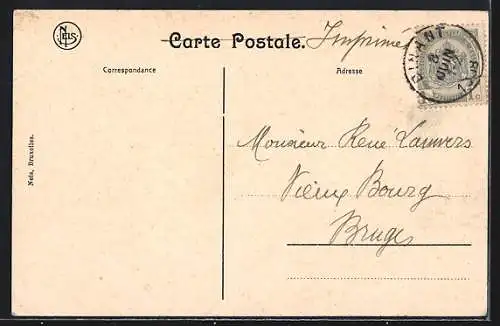 NELS
Carte Postale.
Imprimé
DINANT
Correspondance
Adresse
Monsieur René Lauwers
Vieux Bourg
Bruges
Nels, Bruxelles.